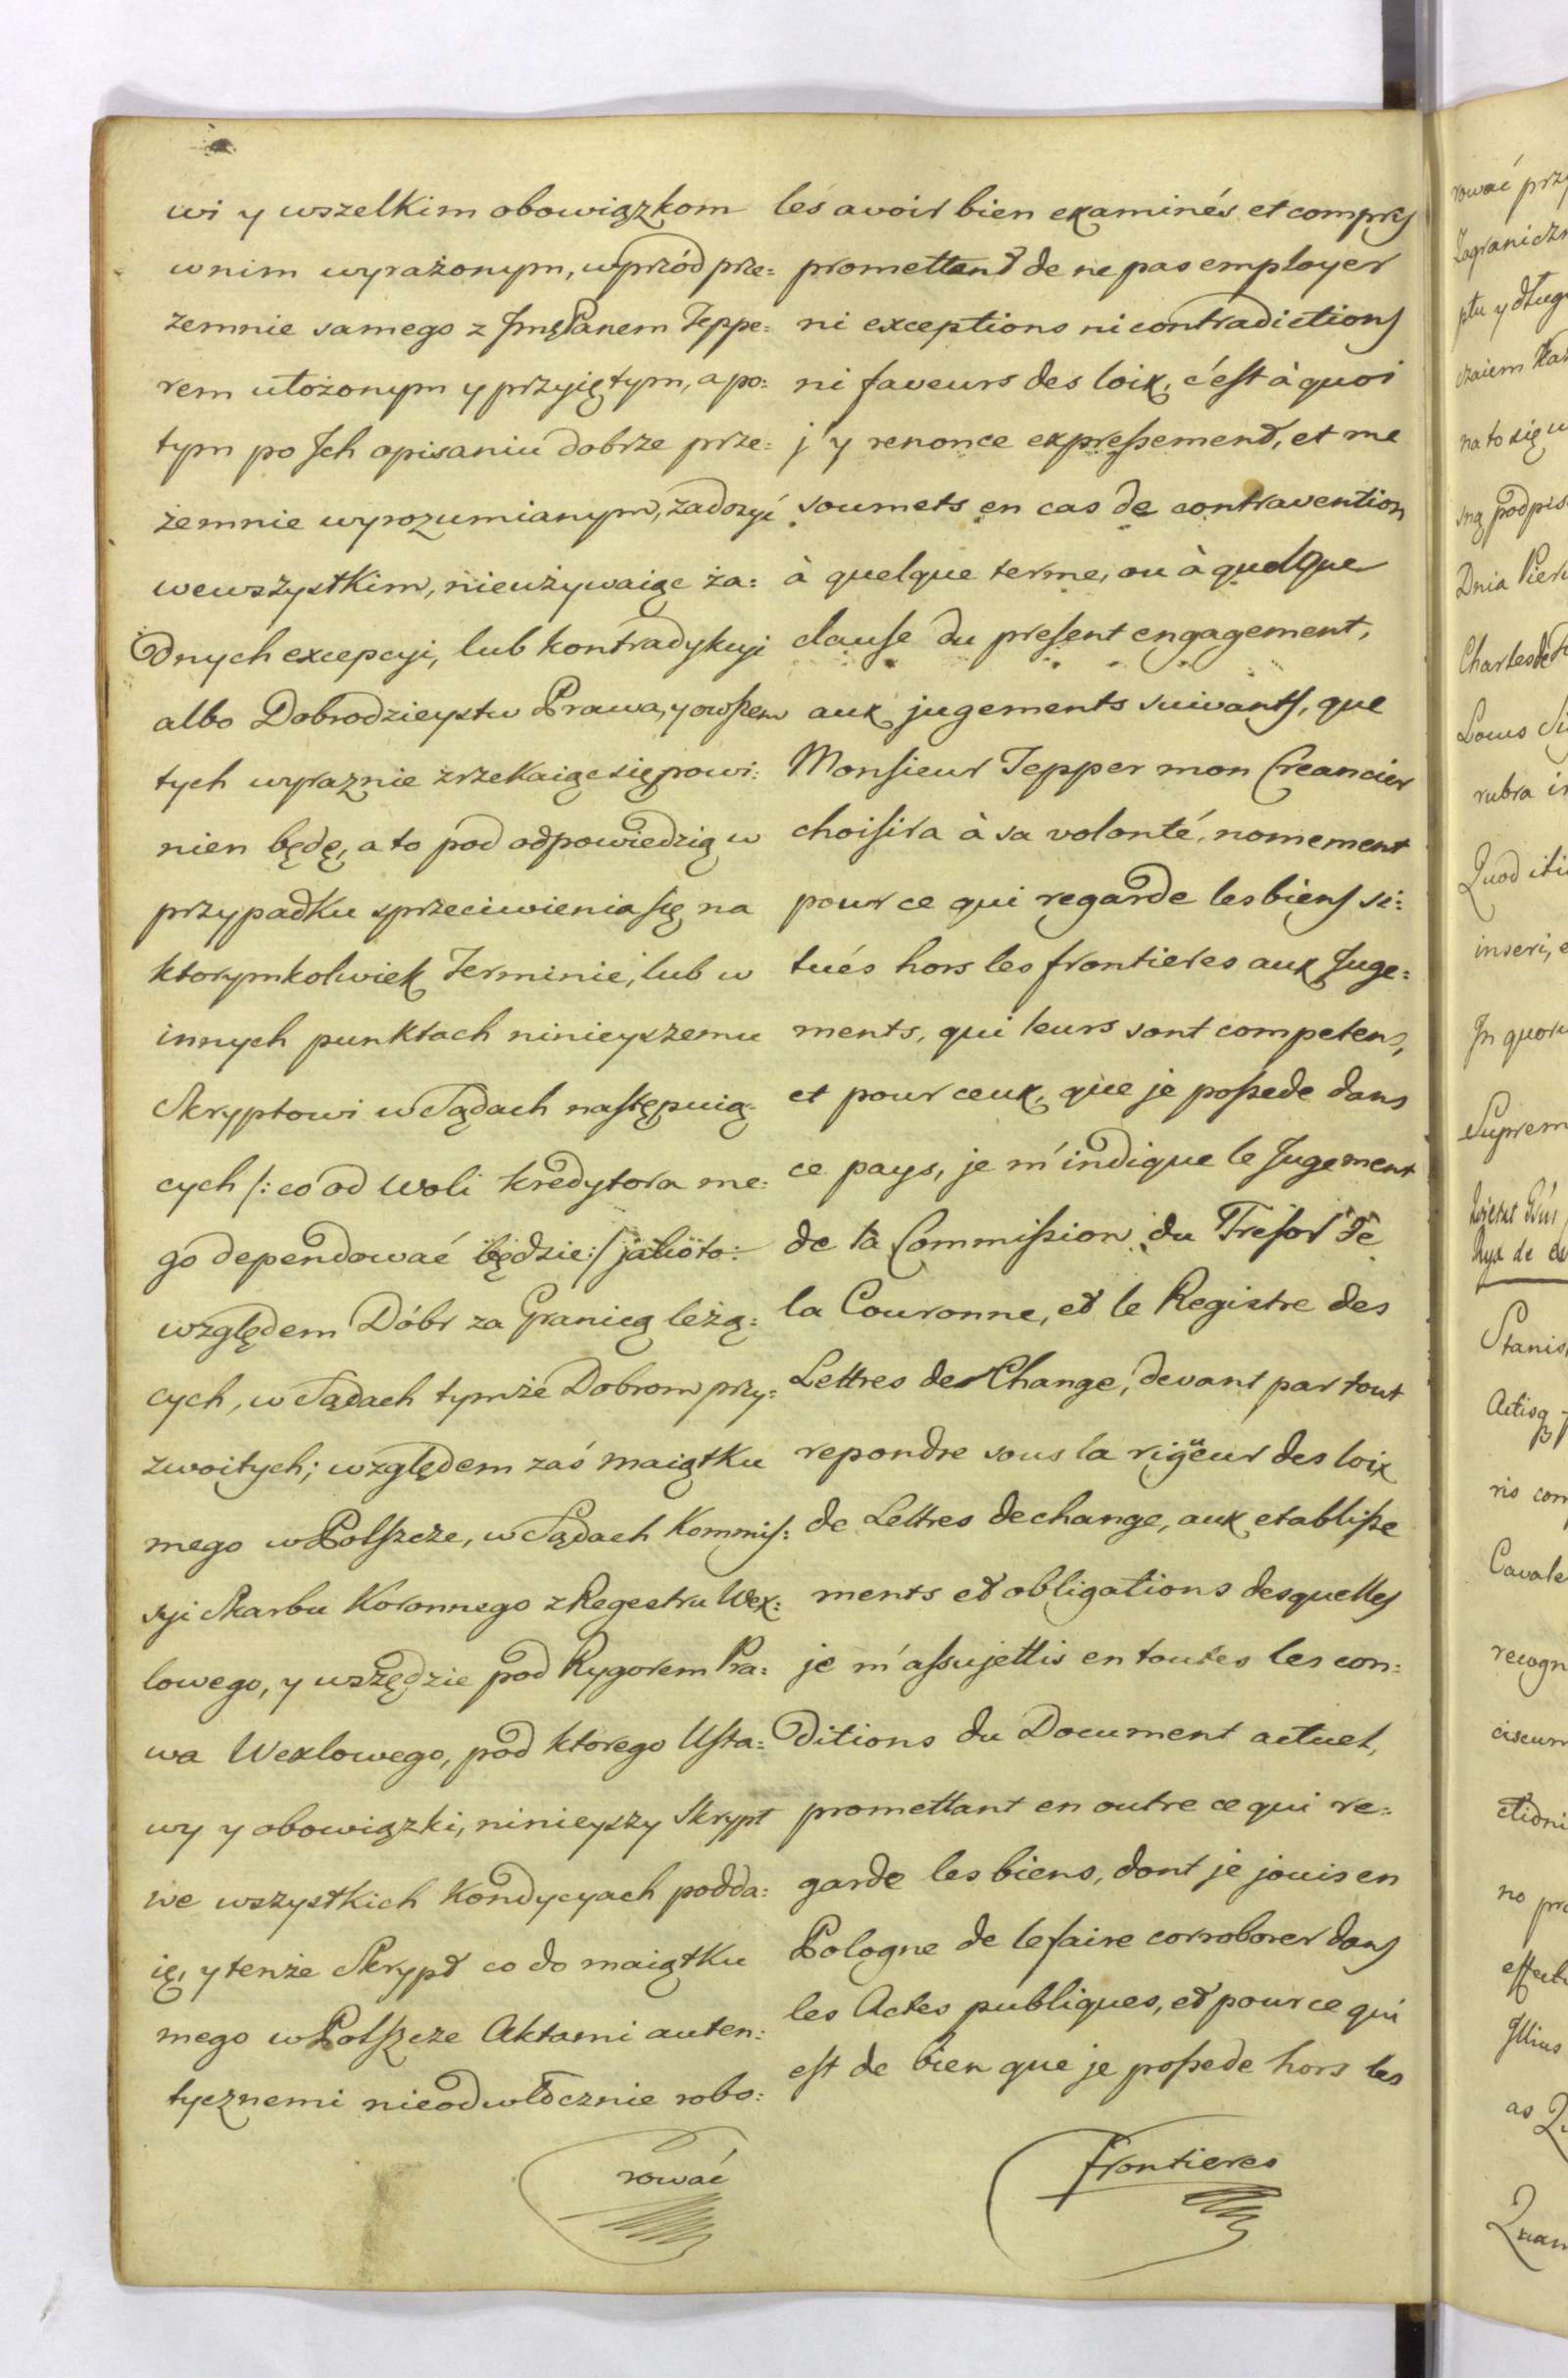 wi y wszelkim obowiązkom
w nim wyrażonym, wprzód prze=
zemnie samego z Jmę Panem Teppe=
rem ułożonym y przyiętym, a po=
tym po Jch opisaniu dobrze prze=
żemnie wyrozumianym, zadosyć
we wszystkim, nieużywaiąc ża=
dnych excepcyi, lub kontradykcyi
albo Dobrodzieystw Prawa, y owszem
tych wyraznie zrzekaiąc się powi=
nien będę, a to pod odpowiedzią w
przypadku sprzeciwienia się na
ktorymkolwiek Terminie, lub w
innych punktach ninieyszemu
Skryptowi w Sądach następuią=
cych /: co od woli kredytora me=
go dependować będzie :/ jako to:
względem Dóbr za Granicą leżą=
cych, w Sądach tymże Dobrom przy=
zwoitych; względem zaś maiątku
mego w Polszcze, w Sądach Kommis=
syi Skarbu Koronnego z Regestru Wex=
lowego, y wszędzie pod Rygorem Pra=
wa Wexlowego, pod ktorego Usta=
wy y obowiązki, ninieyszy Skrypt
we wszystkich Kondycyach podda=
ię, y tenże Skrypt co do maiątku
mego w Polszcze Aktami auten=
tycznemi nieodwłocznie robo=
rować
les avoir bien examinés et compris
promettant de ne pas employer
ni exceptions ni contradictions
ni faveurs des loix, c'est à quoi
j'y renonce expressement, et me
soumets en cas de contravention
à quelque terme, ou à quelque
clause du present engagement,
aux jugements suivants, que
Monsieur Tepper mon Creancier
choisira à sa volonté, nomement
pour ce qui regarde les biens si=
tués hors les frontieres aux Juge=
ments, qui leurs sont competens,
et pour ceux, que je possede dans
ce pays, je m'indique le Jugement
de la Commission du Tresor de
la Couronne, et le Registre des
Lettres de Change, devant par tout
repondre sous la rigueur des loix
de Lettres de change, aux etablisse
ments et obligations desquelles
je m'assujettis en toutes les con=
ditions du Document actuel,
promettant en outre ce qui re=
garde les biens, dont je jouis en
Pologne de le faire corroborer dans
les Actes publiques, et pour ce qui
est de bien que je possede hors les
frontieres
rować
Zagranicz
ptu y długu
czaiem
na to się
sną podpis
Dnia
Charles de
Locus
rubra
Quod
inseri,
Jn
Suprem
Stanis
ris
Cavale
recogn
no
Jllius
as